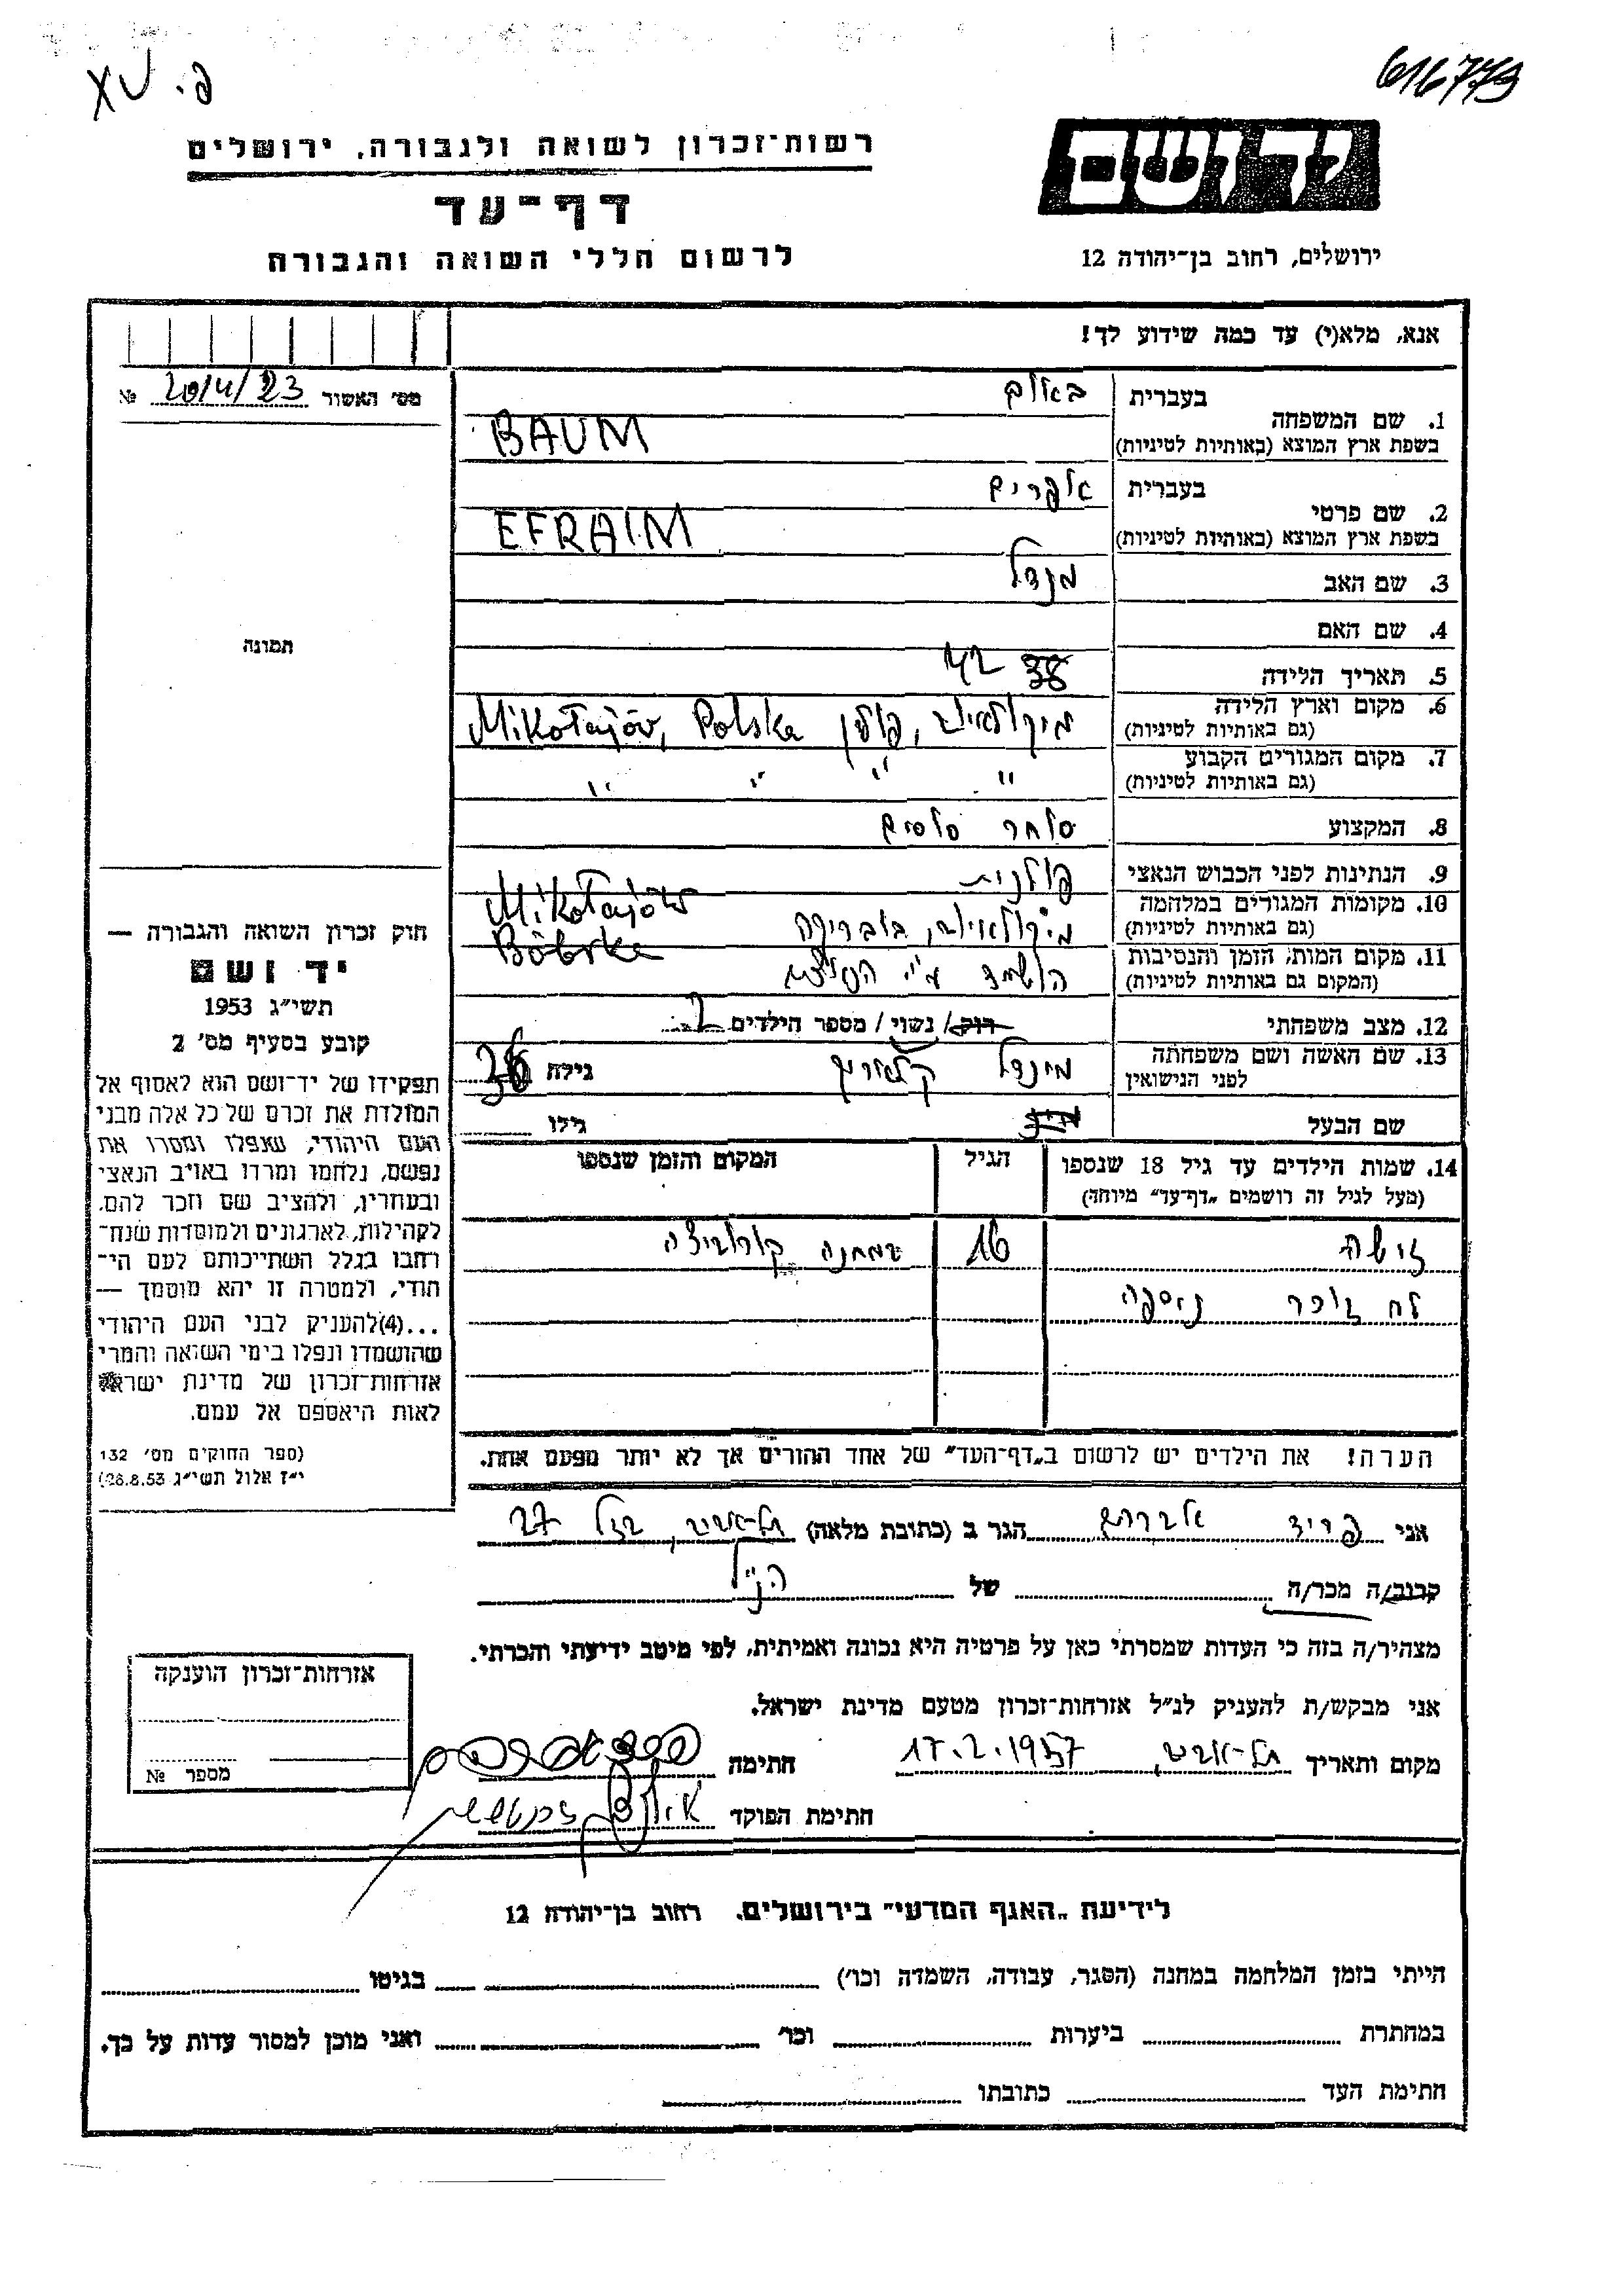 פ. XV
616779
יד ושם
רשות־זכרון לשואה ולגבורה, ירושלים
דף־עד
לרשום חללי השואה והגבורה
ירושלים, רחוב בן־יהודה 12
אנא, מלא(י) עד כמה שידוע לך!
מס׳ האשור 20/4/23 №
1. שם המשפחה
בעברית באום
בשפת ארץ המוצא (באותיות לטיניות) BAUM
2. שם פרטי
בעברית אפרים
בשפת ארץ המוצא (באותיות לטיניות) EFRAIM
3. שם האב מנדל
4. שם האם
5. תאריך הלידה 38 42
6. מקום וארץ הלידה
(גם באותיות לטיניות) מיקולאיוב, פולין Mikołajów, Polska
7. מקום המגורים הקבוע
(גם באותיות לטיניות) " " " "
8. המקצוע סוחר סוסים
9. הנתינות לפני הכבוש הנאצי פולנית
10. מקומות המגורים במלחמה
(גם באותיות לטיניות) מיקולאיוב, בוברקה Mikołajów Bóbrka
11. מקום המות, הזמן והנסיבות
(המקום גם באותיות לטיניות) הושמד ע"י הנאצים
12. מצב משפחתי רוק/ נשוי/ מספר הילדים 2
13. שם האשה ושם משפחתה
לפני הנישואין מינדל גילה 36
שם הבעל גילו
14. שמות הילדים עד גיל 18 שנספו
(מעל לגיל זה רושמים „דף־עד״ מיוחד)
הגיל
המקום והזמן שנספו
זישה 16 במחנה
לא זוכר נוספה
הערה! את הילדים יש לרשום ב„דף־העד״ של אחד ההורים אך לא יותר מפעם אחת.
תמונה
חוק זכרון השואה והגבורה —
יד ושם
תשי״ג 1953
קובע בסעיף מס׳ 2
תפקידו של יד־ושם הוא לאסוף אל
המולדת את זכרם של כל אלה מבני
העם היהודי, שנפלו ומסרו את
נפשם, נלחמו ומרדו באויב הנאצי
ובעוזריו, ולהציב שם וזכר להם,
לקהילות, לארגונים ולמוסדות שנח־
רבו בגלל השתייכותם לעם הי־
הודי, ולמטרה זו יהא מוסמך —
...(4) להעניק לבני העם היהודי
שהושמדו ונפלו בימי השואה והמרי
אזרחות־זכרון של מדינת ישראל
לאות היאספם אל עמם.
(ספר החוקים מס׳ 132
י״ז אלול תשי״ג 28.8.53)
אני פריד אברהם הגר ב (כתובת מלאה) תל-אביב, 27
קרוב/ה מכר/ה של הנ"ל
מצהיר/ה בזה כי העדות שמסרתי כאן על פרטיה היא נכונה ואמיתית, לפי מיטב ידיעתי והכרתי.
אני מבקש/ת להעניק לנ״ל אזרחות־זכרון מטעם מדינת ישראל.
מקום ותאריך תל-אביב, 17.2.1957 חתימה
חתימת הפוקד
אזרחות־זכרון הוענקה
מספר №
לידיעת „האגף המדעי״ בירושלים, רחוב בן־יהודה 12
הייתי בזמן המלחמה במחנה (הסגר, עבודה, השמדה וכו׳) בגיטו
במחתרת ביערות וכו׳ ואני מוכן למסור עדות על כך.
חתימת העד כתובתו